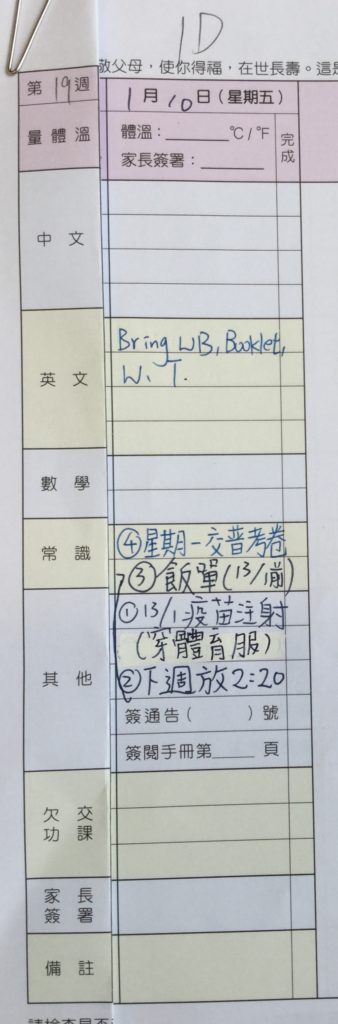 1D
敬父母，使你得福，在世長壽。這是
第19週
1月10日(星期五)
量體溫
體溫：________℃/℉
家長簽署：________
完成
中文
英文
Bring WB, Booklet,
W. T.
數學
常識
④星期一交普考卷
③飯單(13/1前)
其他
①13/1疫苗注射
(穿體育服)
②下週放2:20
簽通告(　　　)號
簽閱手冊第_____頁
欠交
功課
家長
簽署
備註